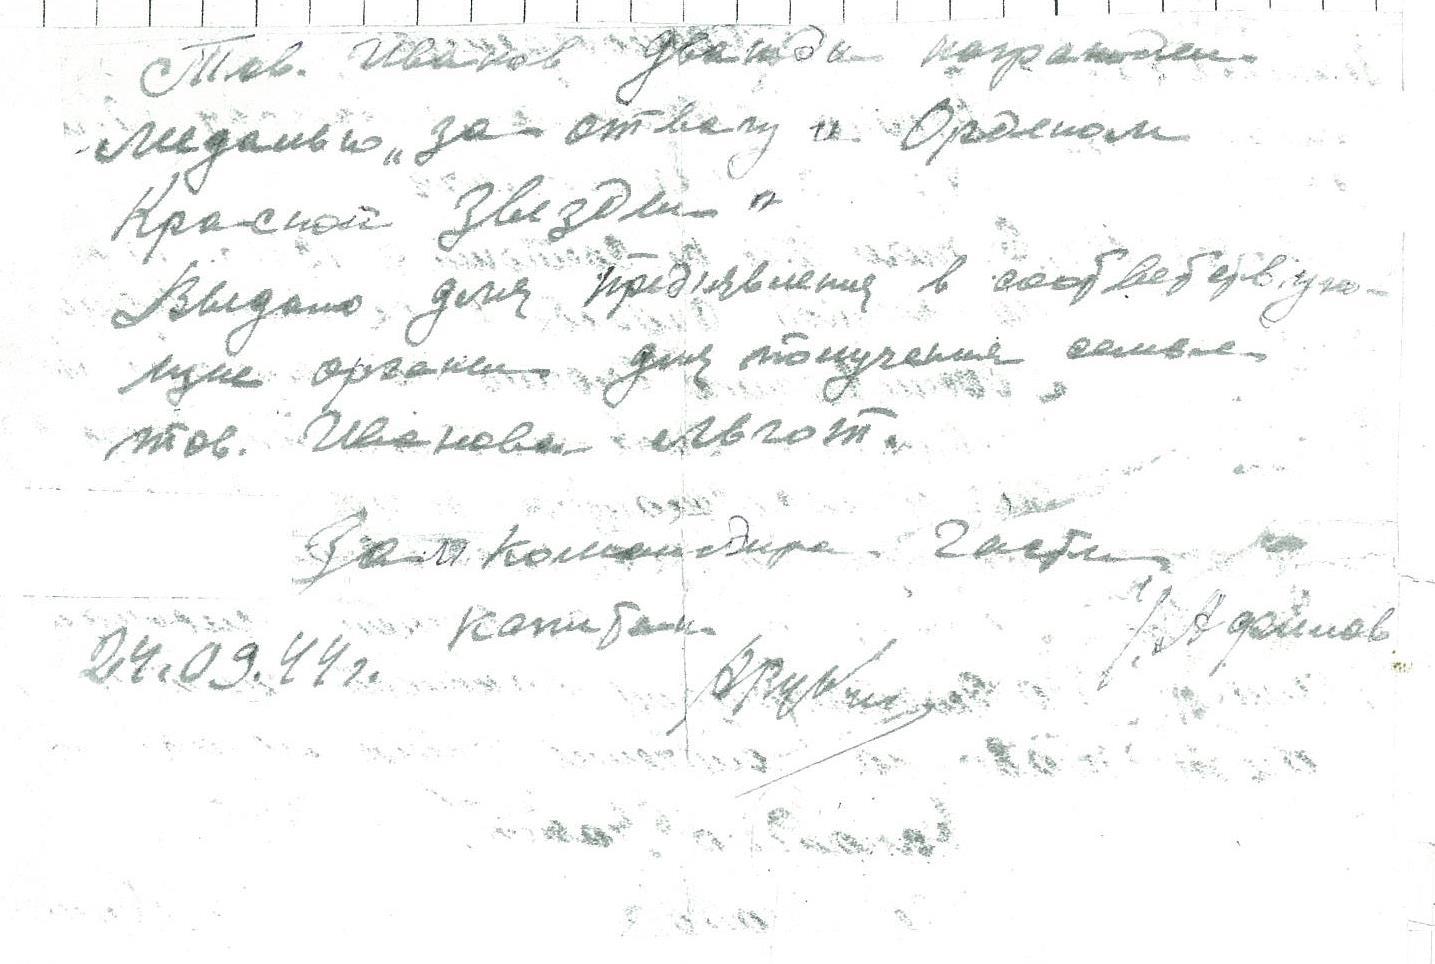 Тов. Иванов дважды награжден
медалью „за отвагу" и Орденом
Красной Звезды"
Выдано для предъявления в соответствую-
щие органы для получения семье
тов. Иванова льгот.
Зам командира Части
капитан
24.09.44 г.